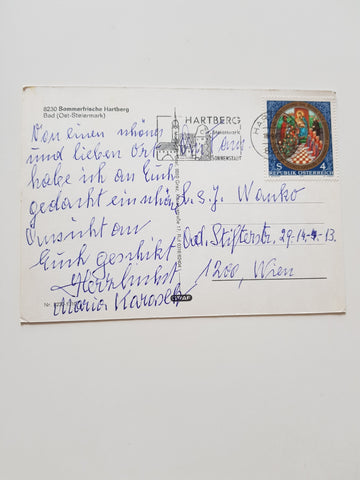 8230 Sommerfrische Hartberg
Bad (Ost-Steiermark)
Von einen schönen
und lieben Ort
habe ich an Euch
gedacht ein schön
Ansicht an
Euch geschikt
Herzlichst
Maria Karasek
HARTBERG
Steiermark
SONNENSTADT
HA
S 4
REPUBLIK ÖSTERREICH
Wanko
Ad. Stifterstr. 29-14-4-13.
1200, Wien
Nr.